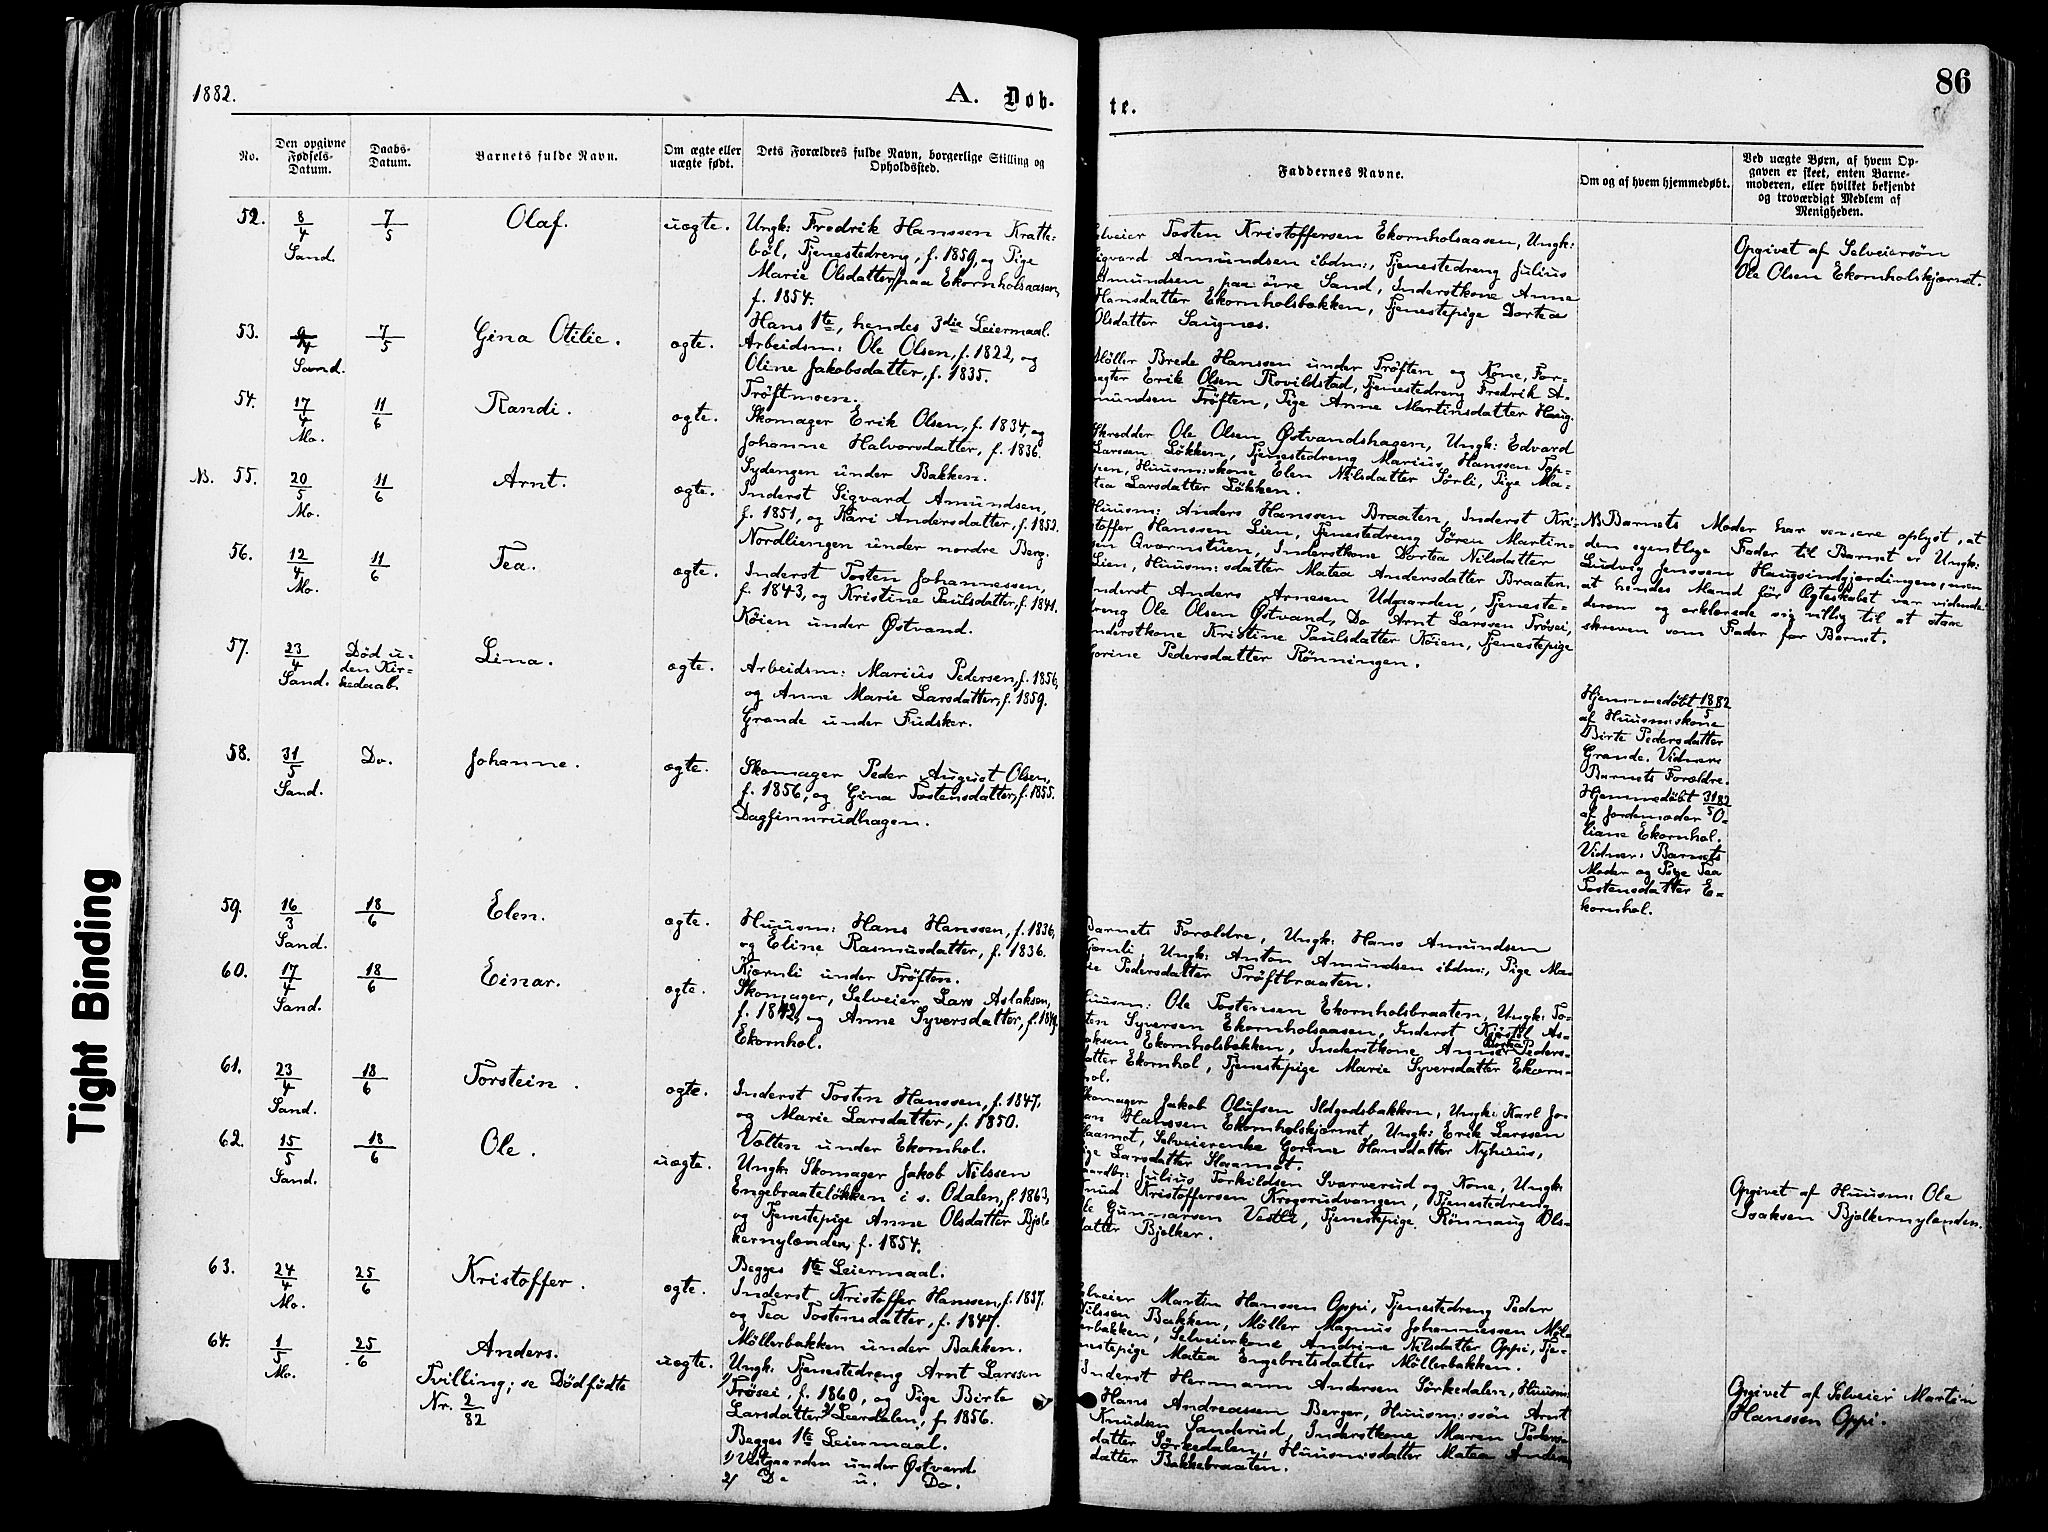 1882.
A. Døb-
te.
86
No.
Den opgivne
Fødsels-
Datum.
Daabs-
Datum.
Barnets fulde Navn.
Om ægte eller
uægte født.
Dets Forældres fulde Navn, borgerlige Stilling og
Opholdssted.
Faddernes Navne.
Om og af hvem hjemmedøbt.
Ved uægte Børn, af hvem Op-
gaven er skeet, enten Barne-
moderen, eller hvilket bekjendt
og troværdigt Medlem af
Menigheden.
52.
8/4
Sand.
7/5
Olaf.
uægte.
Ungk: Fredrik Hanssen Kratte-
bøl, Tjenestedreng, f. 1859, og Pige
Marie Olsdatter paa Ekornholsaasen,
f. 1854.
Hans 1te, hendes 3die Leiermaal.
elveier Tosten Kristoffersen Ekornholsaasen, Ungk:
igvard Amundsen ibdm:, Tjenestedreng Julius
Amundsen paa övre Sand, Inderstkone Anne
Hansdatter Ekornholsbakken, Tjenestepige Dortea
Olsdatter Saugnæs.
Opgivet af Selveiersön
Ole Olsen Ekornholskjærnet.
53.
9/4
Sand.
7/5
Gina Otilie.
ægte.
Arbeidsm: Ole Olsen, f. 1822, og
Oline Jakobsdatter, f. 1835.
Tröftmoen.
Möller Brede Hanssen under Tröften og Kone, For-
pagter Erik Olsen Rovildstad, Tjenestedreng Fredrik A-
mundsen Tröften, Pige Anne Martinsdatter Haug.
54.
17/4
Mo.
11/6
Randi.
ægte.
Skomager Erik Olsen, f. 1834, og
Johanne Halvorsdatter, f. 1836.
Sydengen under Bakken.
Skredder Ole Olsen Østvandshagen, Ungk: Edvard
Larssen Løkken, Tjenestedreng Marius Hanssen Top-
pen, Huusm:skone Elen Nilsdatter Sörli, Pige Ma-
tea Larsdatter Løkken.
NB. 55.
20/5
Mo.
11/6
Arnt.
ægte.
Inderst Sigvard Amundsen,
f. 1851, og Kari Andersdatter, f. 1852.
Nordliengen under nordre Berg.
Huusm: Anders Hanssen Braaten, Inderst Kri-
stoffer Hanssen Lien, Tjenestedreng Sören Martin-
sen Qværnstuen, Inderstkone Dortea Nilsdatter
Lien, Huusm:sdatter Matea Andersdatter Braaten.
NB Barnets Moder har senere oplyst, at
den egentlige Fader til Barnet er Ungk:
Ludvig Jenssen Haugsindgjærdingen, men
at hendes Mand før Ægteskabet var vidende
derom og erklærede sig villig til at staa
skreven som Fader for Barnet.
56.
12/4
Mo.
11/6
Tea.
ægte.
Inderst Tosten Johannessen,
f. 1843, og Kristine Paulsdatter, f. 1841.
Nöien under Østvand.
Inderst Anders Arnesen Udgaarden, Tjeneste-
dreng Ole Olsen Østvand, Do Arnt Larssen Trösei,
Inderstkone Kristine Paulsdatter Nöien, Tjenestepige
Gorine Pedersdatter Rönningen.
57.
23/4
Sand.
Død u-
den Kir-
kedaab.
Lina.
ægte.
Arbeidsm: Marius Pedersen, f. 1856,
og Anne Marie Larsdatter, f. 1859.
Grande under Fudsker.
Hjemmedøbt 18/5 82
af Huusm:skone
Birte Pedersdatter
Grande. Vidner:
Barnets Forældre.
58.
31/5
Sand.
Do.
Johanne.
ægte.
Skomager Peder August Olsen,
f. 1856, og Gina Tostensdatter, f. 1855.
Dagfinnrudhagen.
Hjemmedøbt 31/5 82
af Jordemoder O-
liane Ekornhol.
Vidner: Barnets
Moder og Pige Tea
Tostensdatter E-
kornhol.
59.
16/3
Sand.
18/6
Elen.
ægte.
Huusm: Hans Hanssen, f. 1836,
og Eline Rasmusdatter, f. 1836.
Kjærnli under Tröften.
Barnets Forældre, Ungk: Hans Amundsen
Kjærnli, Ungk: Anton Amundsen ibdm:, Pige Ma-
rie Pedersdatter Tröftbraaten.
60.
17/4
Sand.
18/6
Einar.
ægte.
Skomager, Selveier Lars Aslaksen,
f. 1842, og Anne Syversdatter, f. 1849.
Ekornhol.
Huusm: Ole Tostensen Ekornholsbraaten, Ungk: To-
sten Syversen Ekornholsaasen, Inderst Kjöstel As-
laksen Ekornholsbakken, Inderstkone Anne Peders-
datter Ekornhol, Tjenestepige Marie Syversdatter Ekorn-
hol.
61.
23/4
Sand.
18/6
Torstein.
ægte.
Inderst Tosten Hanssen, f. 1847,
og Marie Larsdatter, f. 1850.
Volten under Ekornhol.
Skomager Jakob Olufsen Ildgedsbakken, Ungk: Karl Jo-
an Hanssen Ekornholskjærnet, Ungk: Erik Larssen
Slaamot, Selveierenke Gorine Hansdatter Nyhuus,
Pige Larsdatter Slaamot.
62.
15/5
Sand.
18/6
Ole.
uægte.
Ungk: Skomager Jakob Nilssen
Engebraateløkken i s. Odalen, f. 1863,
og Tjenestepige Anne Olsdatter Bjøl-
kernylænden, f. 1854.
Begges 1te Leiermaal.
Gaardbr: Julius Torkildsen Svarverud og Kone, Ungk:
Knud Kristoffersen Krogsrudvangen, Tjenestedreng
Ole Gunnarsen Vestli, Tjenestepige Rönnaug Ols-
datter Bjølker.
Opgivet af Huusm: Ole
Isaksen Bjølkernylænden.
63.
24/4
Mo.
25/6
Kristoffer.
ægte.
Inderst Kristoffer Hanssen, f. 1837,
og Tea Tostensdatter, f. 1847.
Möllerbakken under Bakken.
elveier Martin Hanssen Oppi, Tjenestedreng Peder
Nilssen Bakken, Möller Magnus Johannessen Möl-
lerbakken, Selveierkone Andrine Nilsdatter Oppi, Tje-
nestepige Matea Engebretsdatter Möllerbakken.
64.
1/5
Mo.
25/6
Anders.
Tvilling; se Dödfødte
Nr. 2/82
uægte.
Ungk: Tjenestedreng Arnt Larssen
1/ Trösei, f. 1860, og Pige Birte
Larsdatter 2/ Leerdalen, f. 1856.
Begges 1te Leiermaal.
1/ Vestgaarden under Østvand.
2/ Do u. Do.
Inderst Hermann Andersen Sörkedalen, Huusm:
Hans Andreassen Berger, Huusm:ssön Arnt
Knudsen Sanderud, Inderstkone Maren Peders-
datter Sörkedalen, Huusm:sdatter Matea Anders-
datter Bakkebraaten.
Opgivet af Selveier Martin
Hanssen Oppi.
Tight Binding